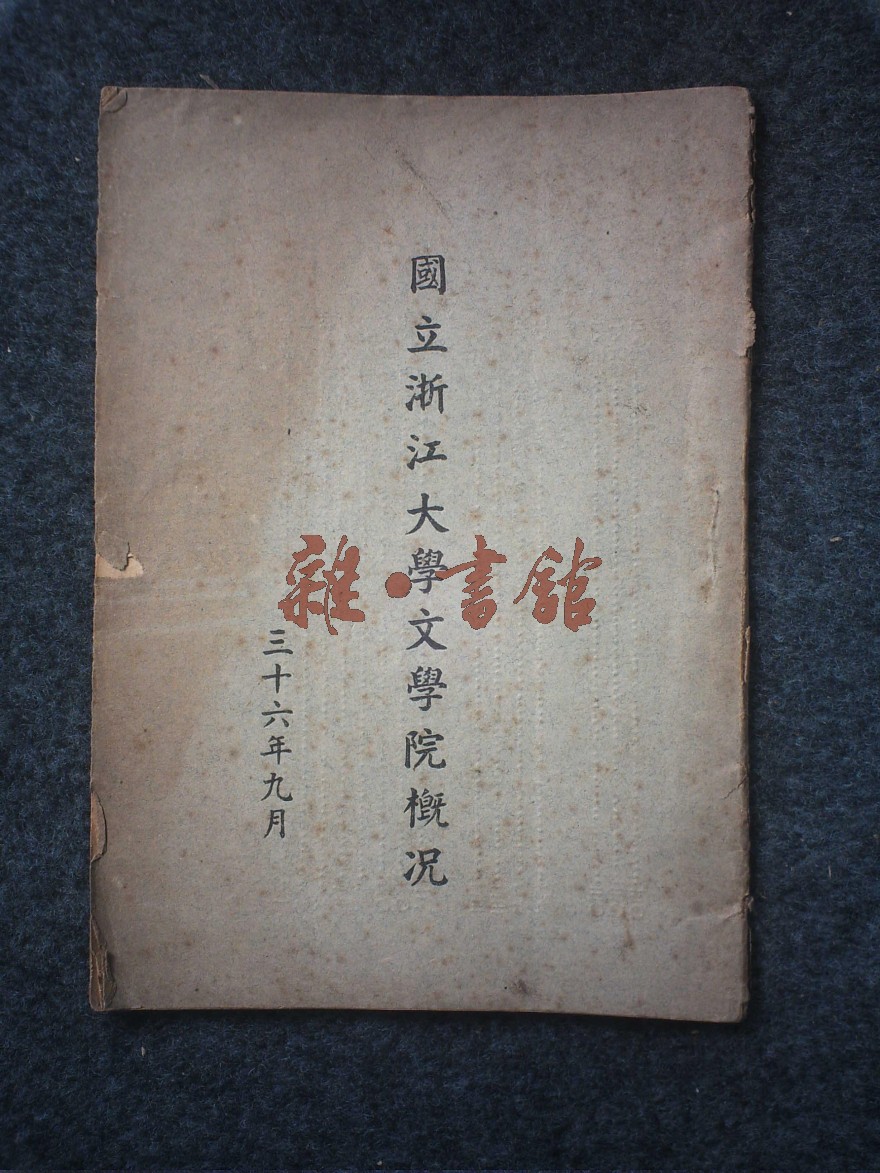 國立浙江大學文學院概况
三十六年九月
雜·書館